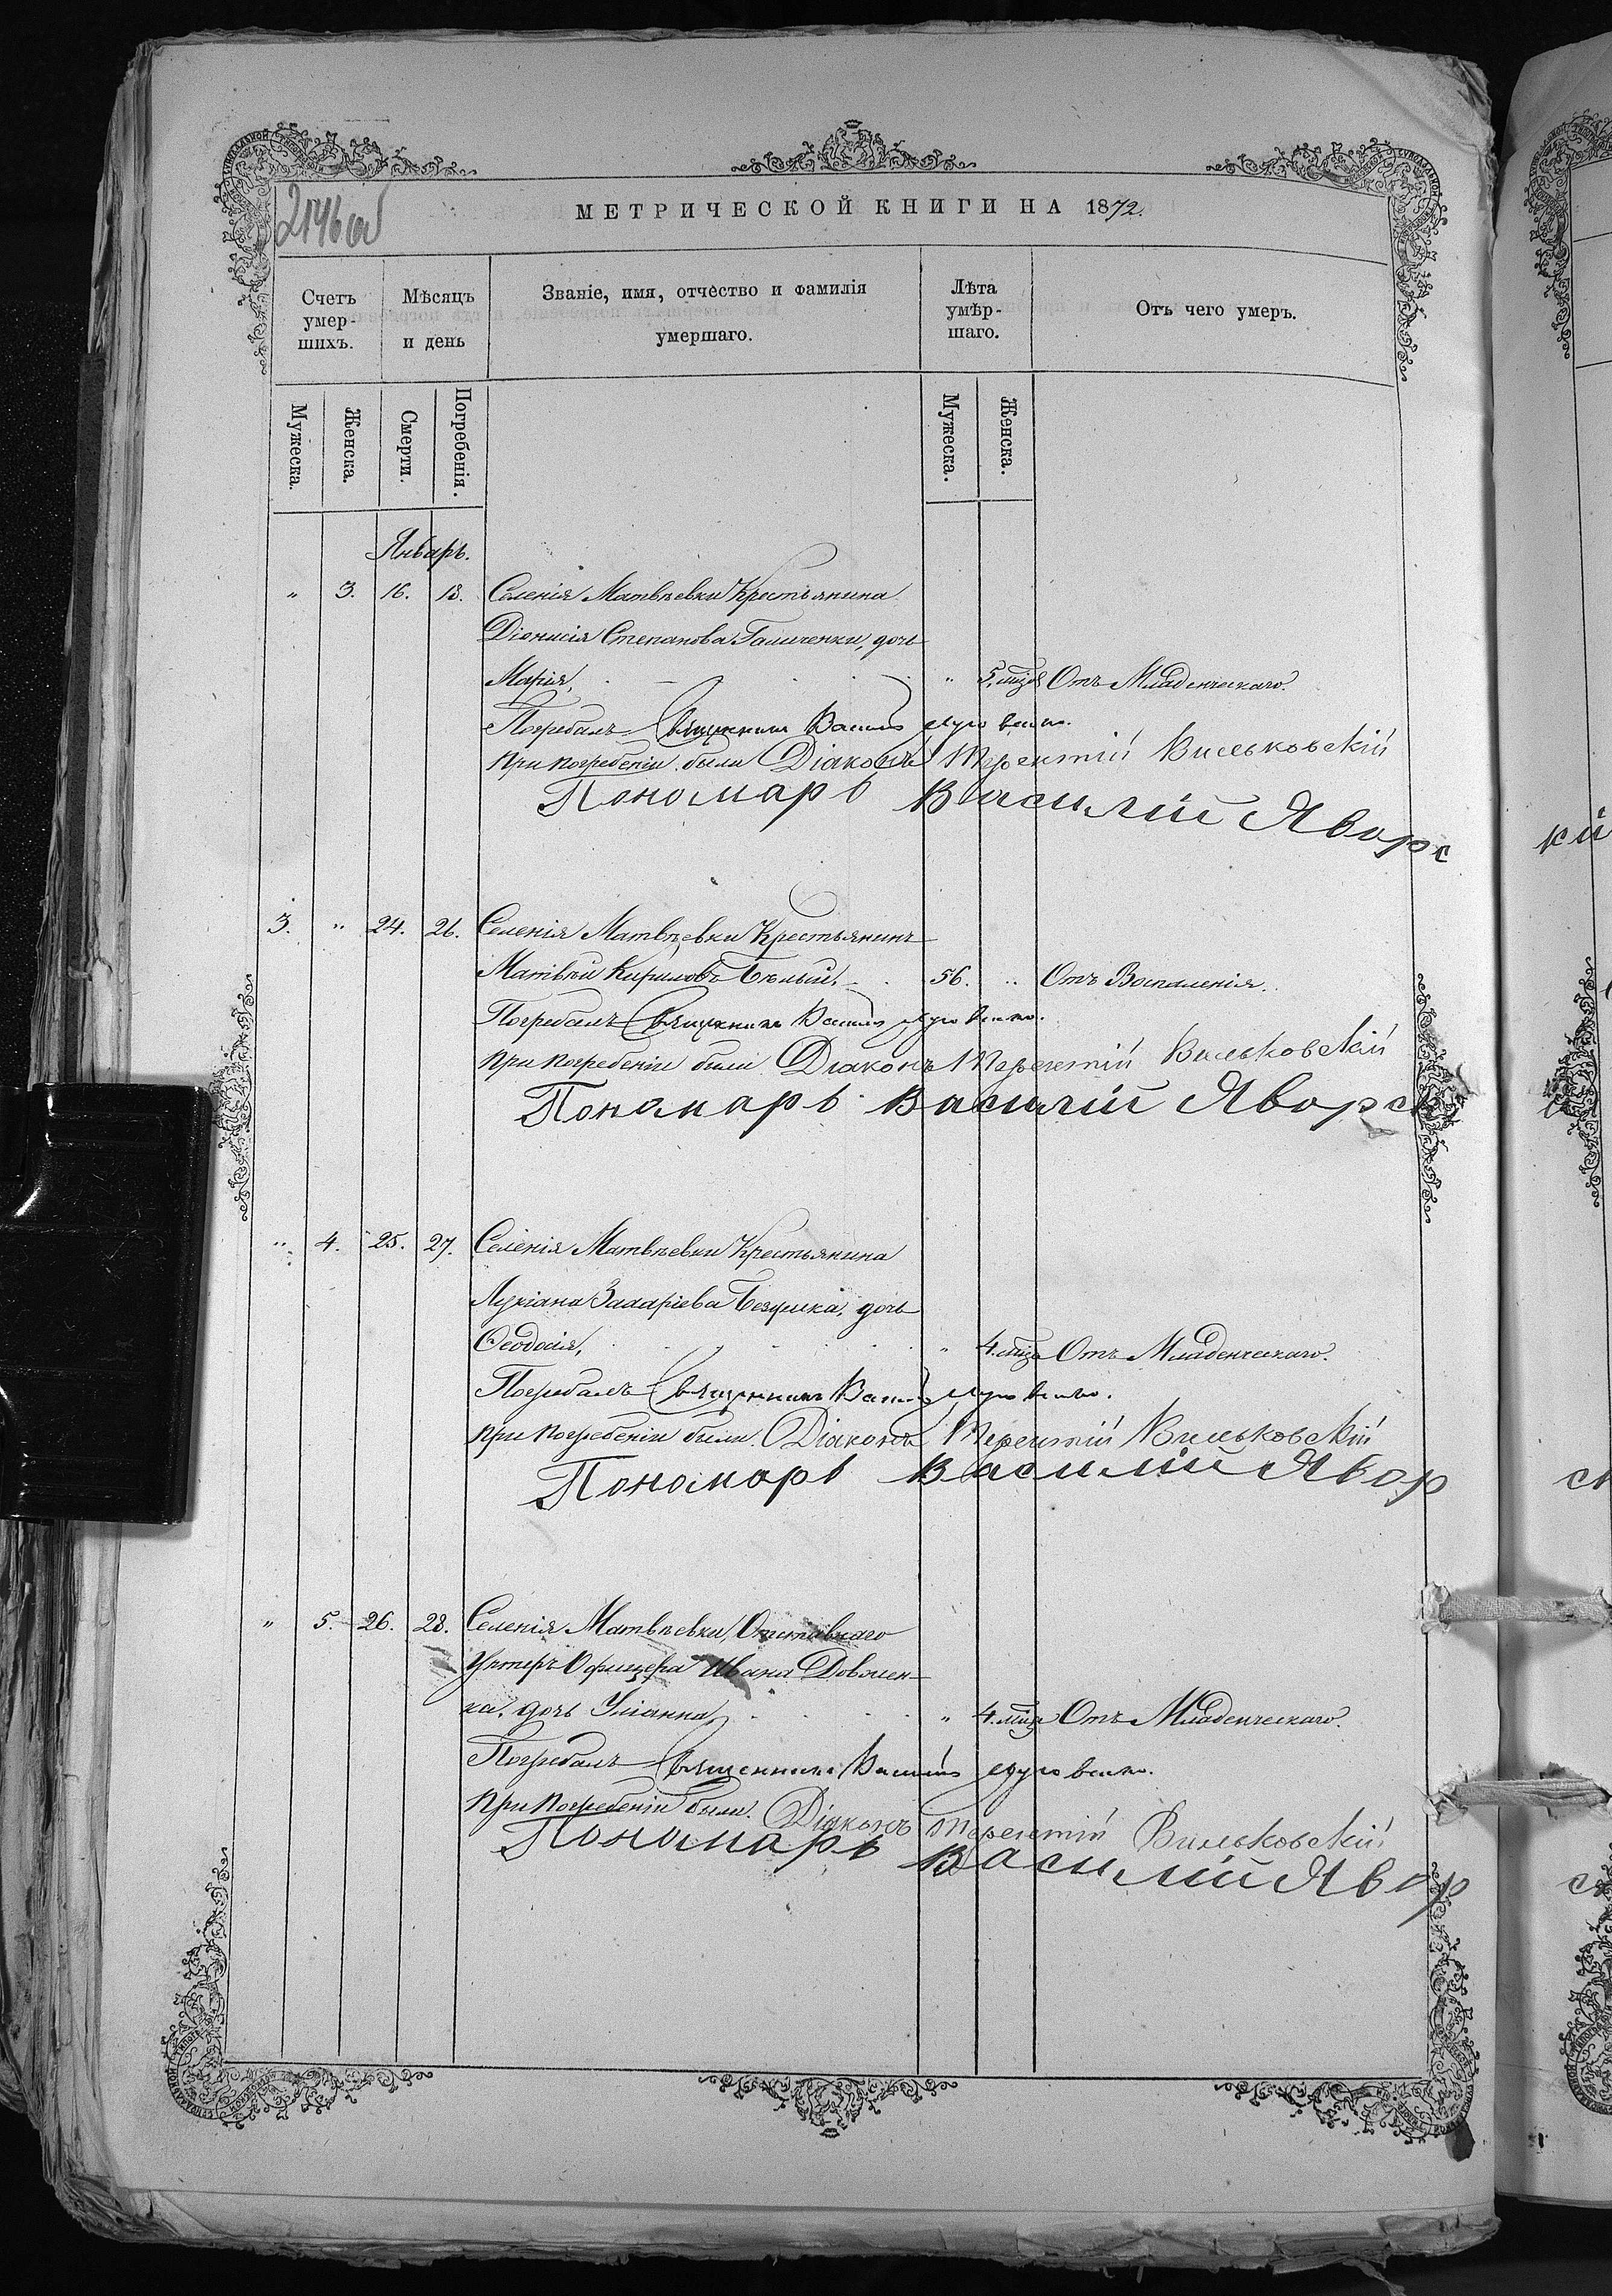 2146 об
МЕТРИЧЕСКОЙ КНИГИ НА 1872.
Счетъ умер-шихъ.
Мѣсяцъ и день
Званіе, имя, отчество и фамилія умершаго.
Лѣта умѣр-шаго.
Отъ чего умеръ.
Мужеска. Женска. Смерти. Погребенія. Мужеска. Женска.
Январь.
" 3. 16. 18. Селенія Матвѣевки Крестьянина
Діонисія Степанова Галиченки, дочь
Марія, " 5. мцов Отъ Младенческаго.
Погребалъ Священникъ Василій
при погребеніи были Діаконъ Терентій Вильковскій
Пономарь Василій Яворс
кій
3. " 24. 26. Селенія Матвѣевки Крестьянинъ
Матвѣй Кириловъ Бѣлый, 56. " Отъ Воспаленія.
Погребалъ Священникъ Василій
при погребеніи были Діаконъ Терентій Вильковскій
Пономарь Василій Яворск
" 4. 25. 27. Селенія Матвѣевки Крестьянина
Лукіана Захаріева дочь
Ѳеодосія, " 4. мца Отъ Младенческаго.
Погребалъ Священникъ Василій
при погребеніи были Діаконъ Терентій Вильковскій
Пономарь Василій Явор
ск
" 5. 26. 28. Селенія Матвѣевки, Отставнаго
Унтеръ Офицера Ивана Довжен-
ка, дочь Уліанна, " 4. мца Отъ Младенческаго.
Погребалъ Священникъ Василій
при погребеніи были Діаконъ Терентій Вильковскій
Пономарь Василій Явор
ск